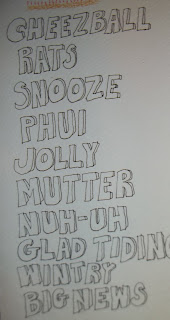 CHEEZBALL
RATS
SNOOZE
PHUI
JOLLY
MUTTER
NUH-UH
GLAD TIDING
WINTRY
BIG NEWS